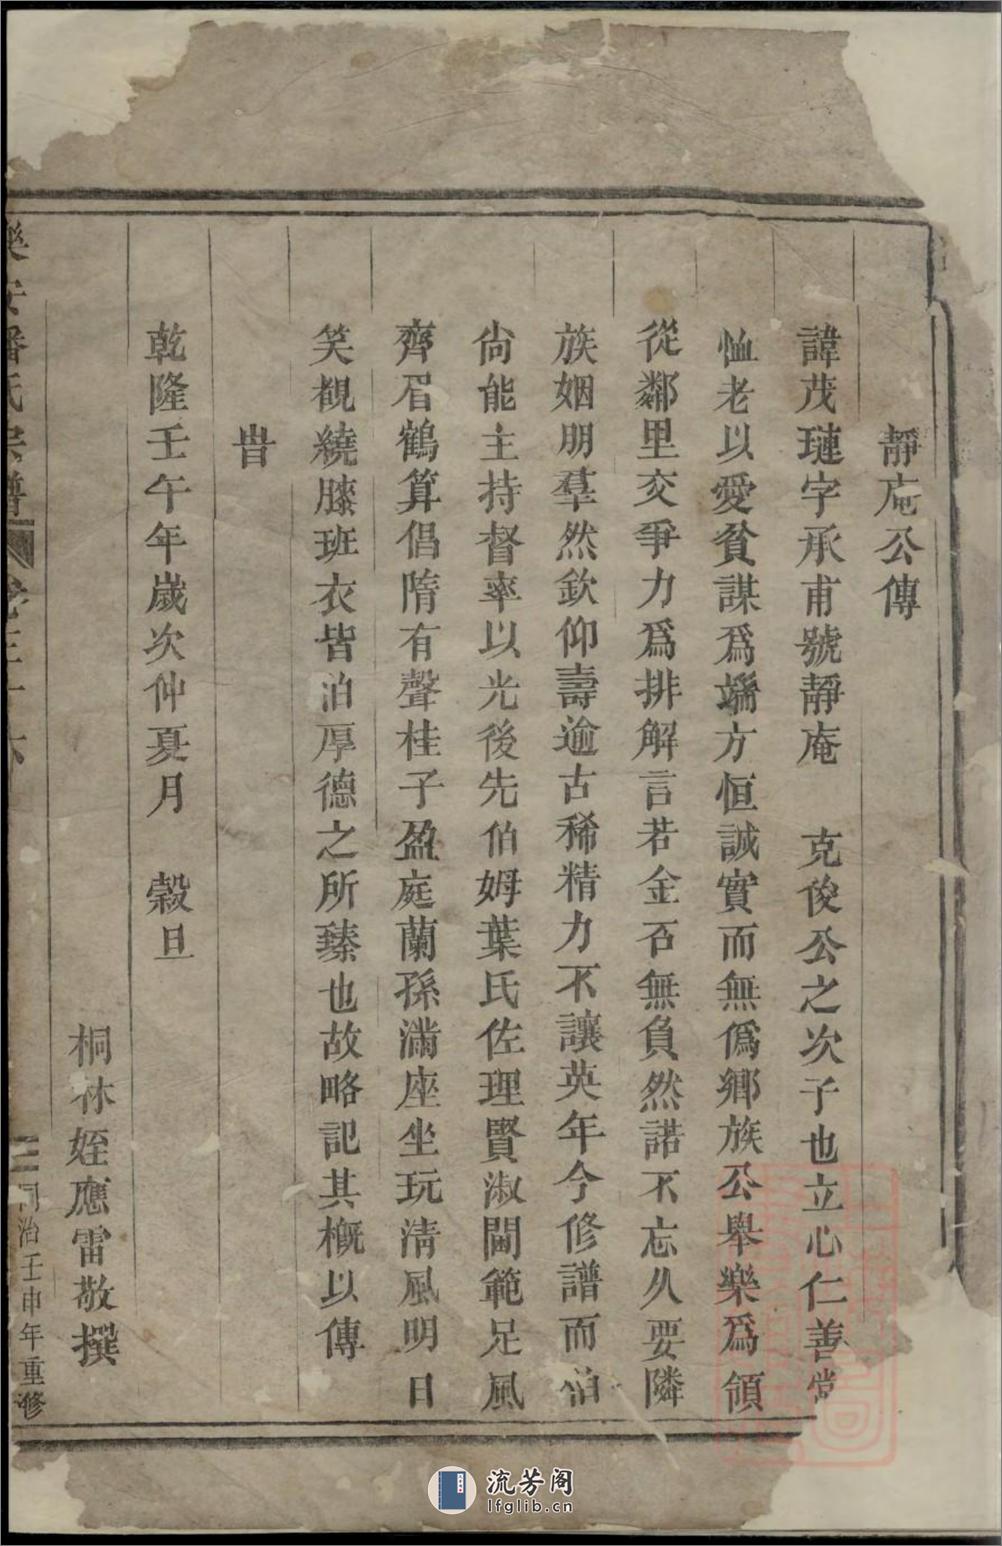 靜庵公傳
諱茂璉字承甫號靜庵　克俊公之次子也立心仁善常
恤老以愛貧謀爲端方恒誠實而無僞鄉族公舉樂爲領
從鄰里交爭力爲排解言若金石無負然諾不忘久要隣
族姻朋羣然欽仰壽逾古稀精力不讓英年今修譜而伯
尙能主持督率以光後先伯姆葉氏佐理賢淑閫範足風
齊眉鶴算倡隋有聲桂子盈庭蘭孫滿座坐玩清風明日
笑覩繞膝班衣皆泊厚德之所臻也故略記其概以傳
旹
乾隆壬午年歲次仲夏月　穀旦
桐林姪應雷敬撰
樂安潘氏宗譜　卷三十六　二　同治壬申年重修
流芳阁
lfglib.cn